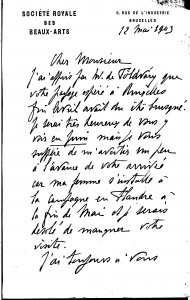 SOCIÉTÉ ROYALE
DES
BEAUX-ARTS
5, RUE DE L'INDUSTRIE
BRUXELLES
12 Mai 1903
Cher Monsieur
J'ai appris par M. de
votre passage à Bruxelles
fin avril avait été
je serai très heureux de vous y
voir en juin mais je vous
supplie de m'avertir un peu
à l'avance de votre arrivée
car ma femme s'installe à
la campagne en Flandre à
la fin de Mai et je serais
désolé de manquer votre
visite.
J'ai toujours à vous